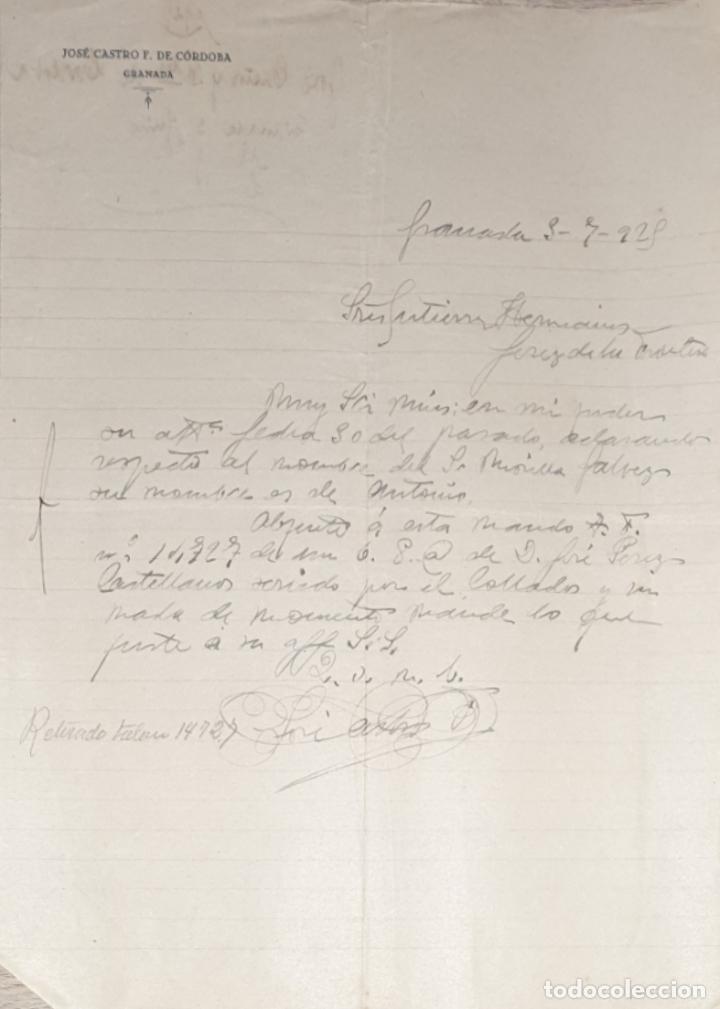 JOSÉ CASTRO F. DE CÓRDOBA
GRANADA
Granada 3-7-925
Sres Gutierrez Hermanos
Jerez de la Frontera
Muy Srs mios: en mi poder
su atta fecha 30 del pasado, aclarando
respecto al nombre del Sr Morilla Galvez
su nombre es de Antonio.
Adjunto á esta mando T. F.
nº 14727 de un de D. José Perez
Castellanos servido por el Collados y sin
nada de momento mande lo que
guste á su aff S.S.
q. s. m. b.
José Castro F.
Retirado talon 14727
todocoleccion